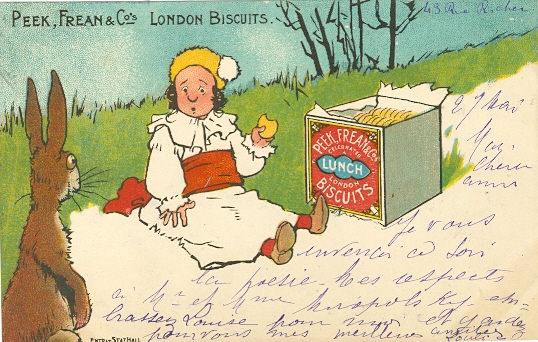 PEEK, FREAN & Co's LONDON BISCUITS.
43 Rue Richer
PEEK, FREAN & Co's
CELEBRATED
LUNCH
LONDON
BISCUITS
27 Mai
Ma
chère
amie
Je vous
enverrai ce soir
la poésie. Mes respects
à Mr et Mme
embrassez Louise pour moi et gardez
pour vous mes meilleures amitiés
ENTD STA. HALL